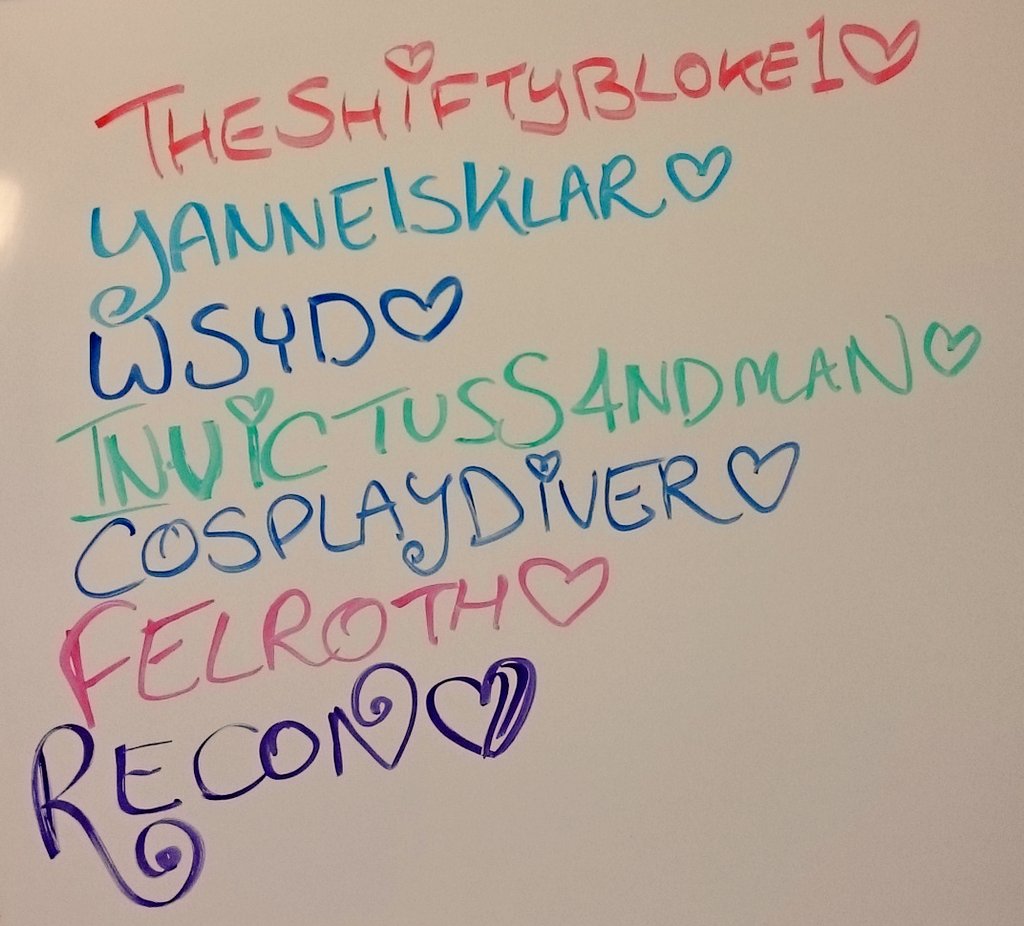 THESHIFTYBLOKE1♡
YANNEISKLAR♡
WSYD♡
INVICTUSS4NDMAN♡
COSPLAYDIVER♡
FELROTH♡
RECON♡